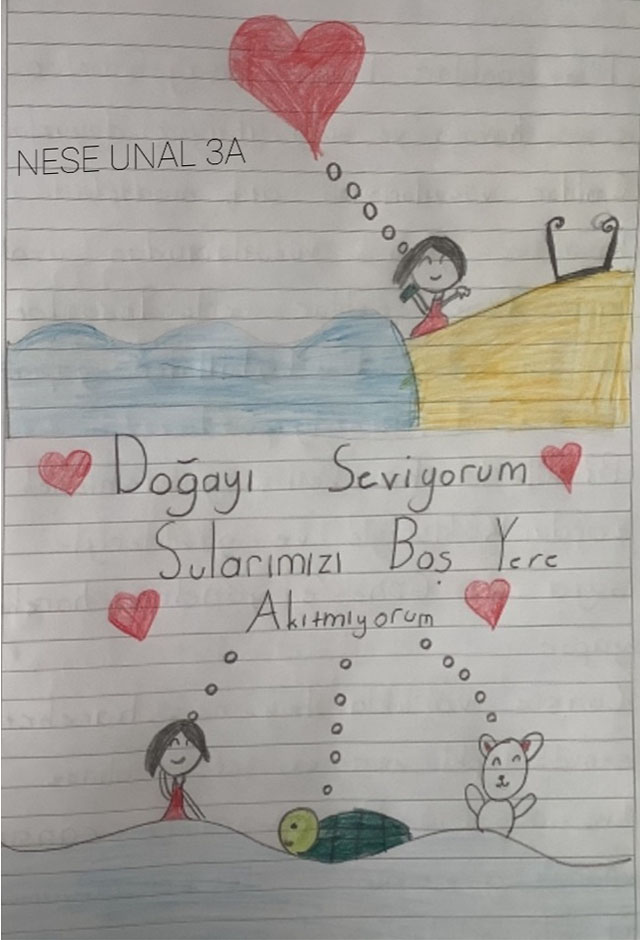 NESE UNAL 3A
Doğayı Seviyorum
Sularımızı Boş Yere
Akıtmıyorum